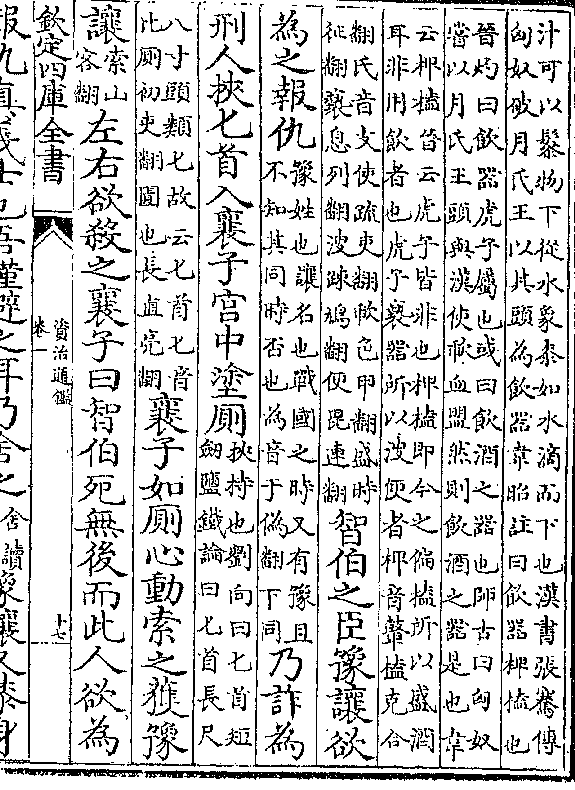 汁可以髹物下從水象桼如水滴而下也漢書張騫傳
匈奴破月氏王以其頭為飲器韋昭註曰飲器椑榼也
晉灼曰飲器虎子屬也或曰飲酒之器也師古曰匈奴
嘗以月氏王頭與漢使歃血盟然則飲酒之器是也韋
云椑榼晉云虎子皆非也椑榼即今之偏榼所以盛酒
耳非用飲者也虎子褻器所以溲便者椑音鼙榼克合
翻氏音支使疏吏翻歃色甲翻盛時
征翻褻息列翻溲疎鳩翻便毘連翻
智伯之臣豫讓欲
為之報仇
豫姓也讓名也戰國之時又有豫且
不知其同時否也為音于偽翻下同
乃詐為
刑人挾匕首入襄子宮中塗厠
挾持也劉向曰匕首短
劔鹽鐵論曰匕首長尺
八寸頭類匕故云匕首匕音
比厠初吏翻圊也長直亮翻
襄子如厠心動索之獲豫
讓
索山
客翻
左右欲殺之襄子曰智伯死無後而此人欲為
欽定四庫全書
資治通鑑
卷一
十七
報仇真義士也吾謹避之耳乃舍之
舍讀
豫讓又漆身